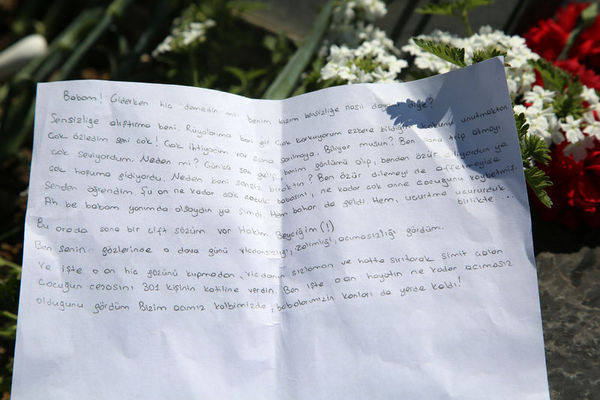 Babam! Giderken hiç demedin mi, benim kızım bensizliğe nasıl dayanır diye?
Sensizliğe alıştırma beni. Rüyalarıma bari gel. Çok korkuyorum ezbere bildiğim kokunu unutmaktan.
Çok özledim seni çok! Çok ihtiyacım var sana sarılmaya. Biliyor musun? Ben sana trip atmayı
çok seviyordum. Neden mi? Çünkü sen gelip benim gönlümü alıp, benden özür diliyordun ya
çok hoşuma gidiyordu. Neden beni sensiz bıraktın? Ben özür dilemeyi de affetmeyide
senden öğrendim. Şu an ne kadar çok çocuk babasını, ne kadar çok anne çocuğunu kaybetmiş.
Ah be babam yanımda olsaydın ya şimdi. Hem bahar da geldi. Hem, uçurtma uçururduk
birlikte...
Bu arada sana bir çift sözüm var Hakim Beyciğim (!)
Ben senin gözlerinde o dava günü vicdansızlığı, zalimliği, acımasızlığı gördüm.
Ve işte o an hiç gözünü kırpmadan, vicdanın sızlamadan ve hatta sırıtarak simit çalan
çocuğun cezasını 301 kişinin katiline verdin. Ben işte o an hayatın ne kadar acımasız
olduğunu gördüm Bizim acımız kalbimizde, babalarımızın kanları da yerde kaldı!